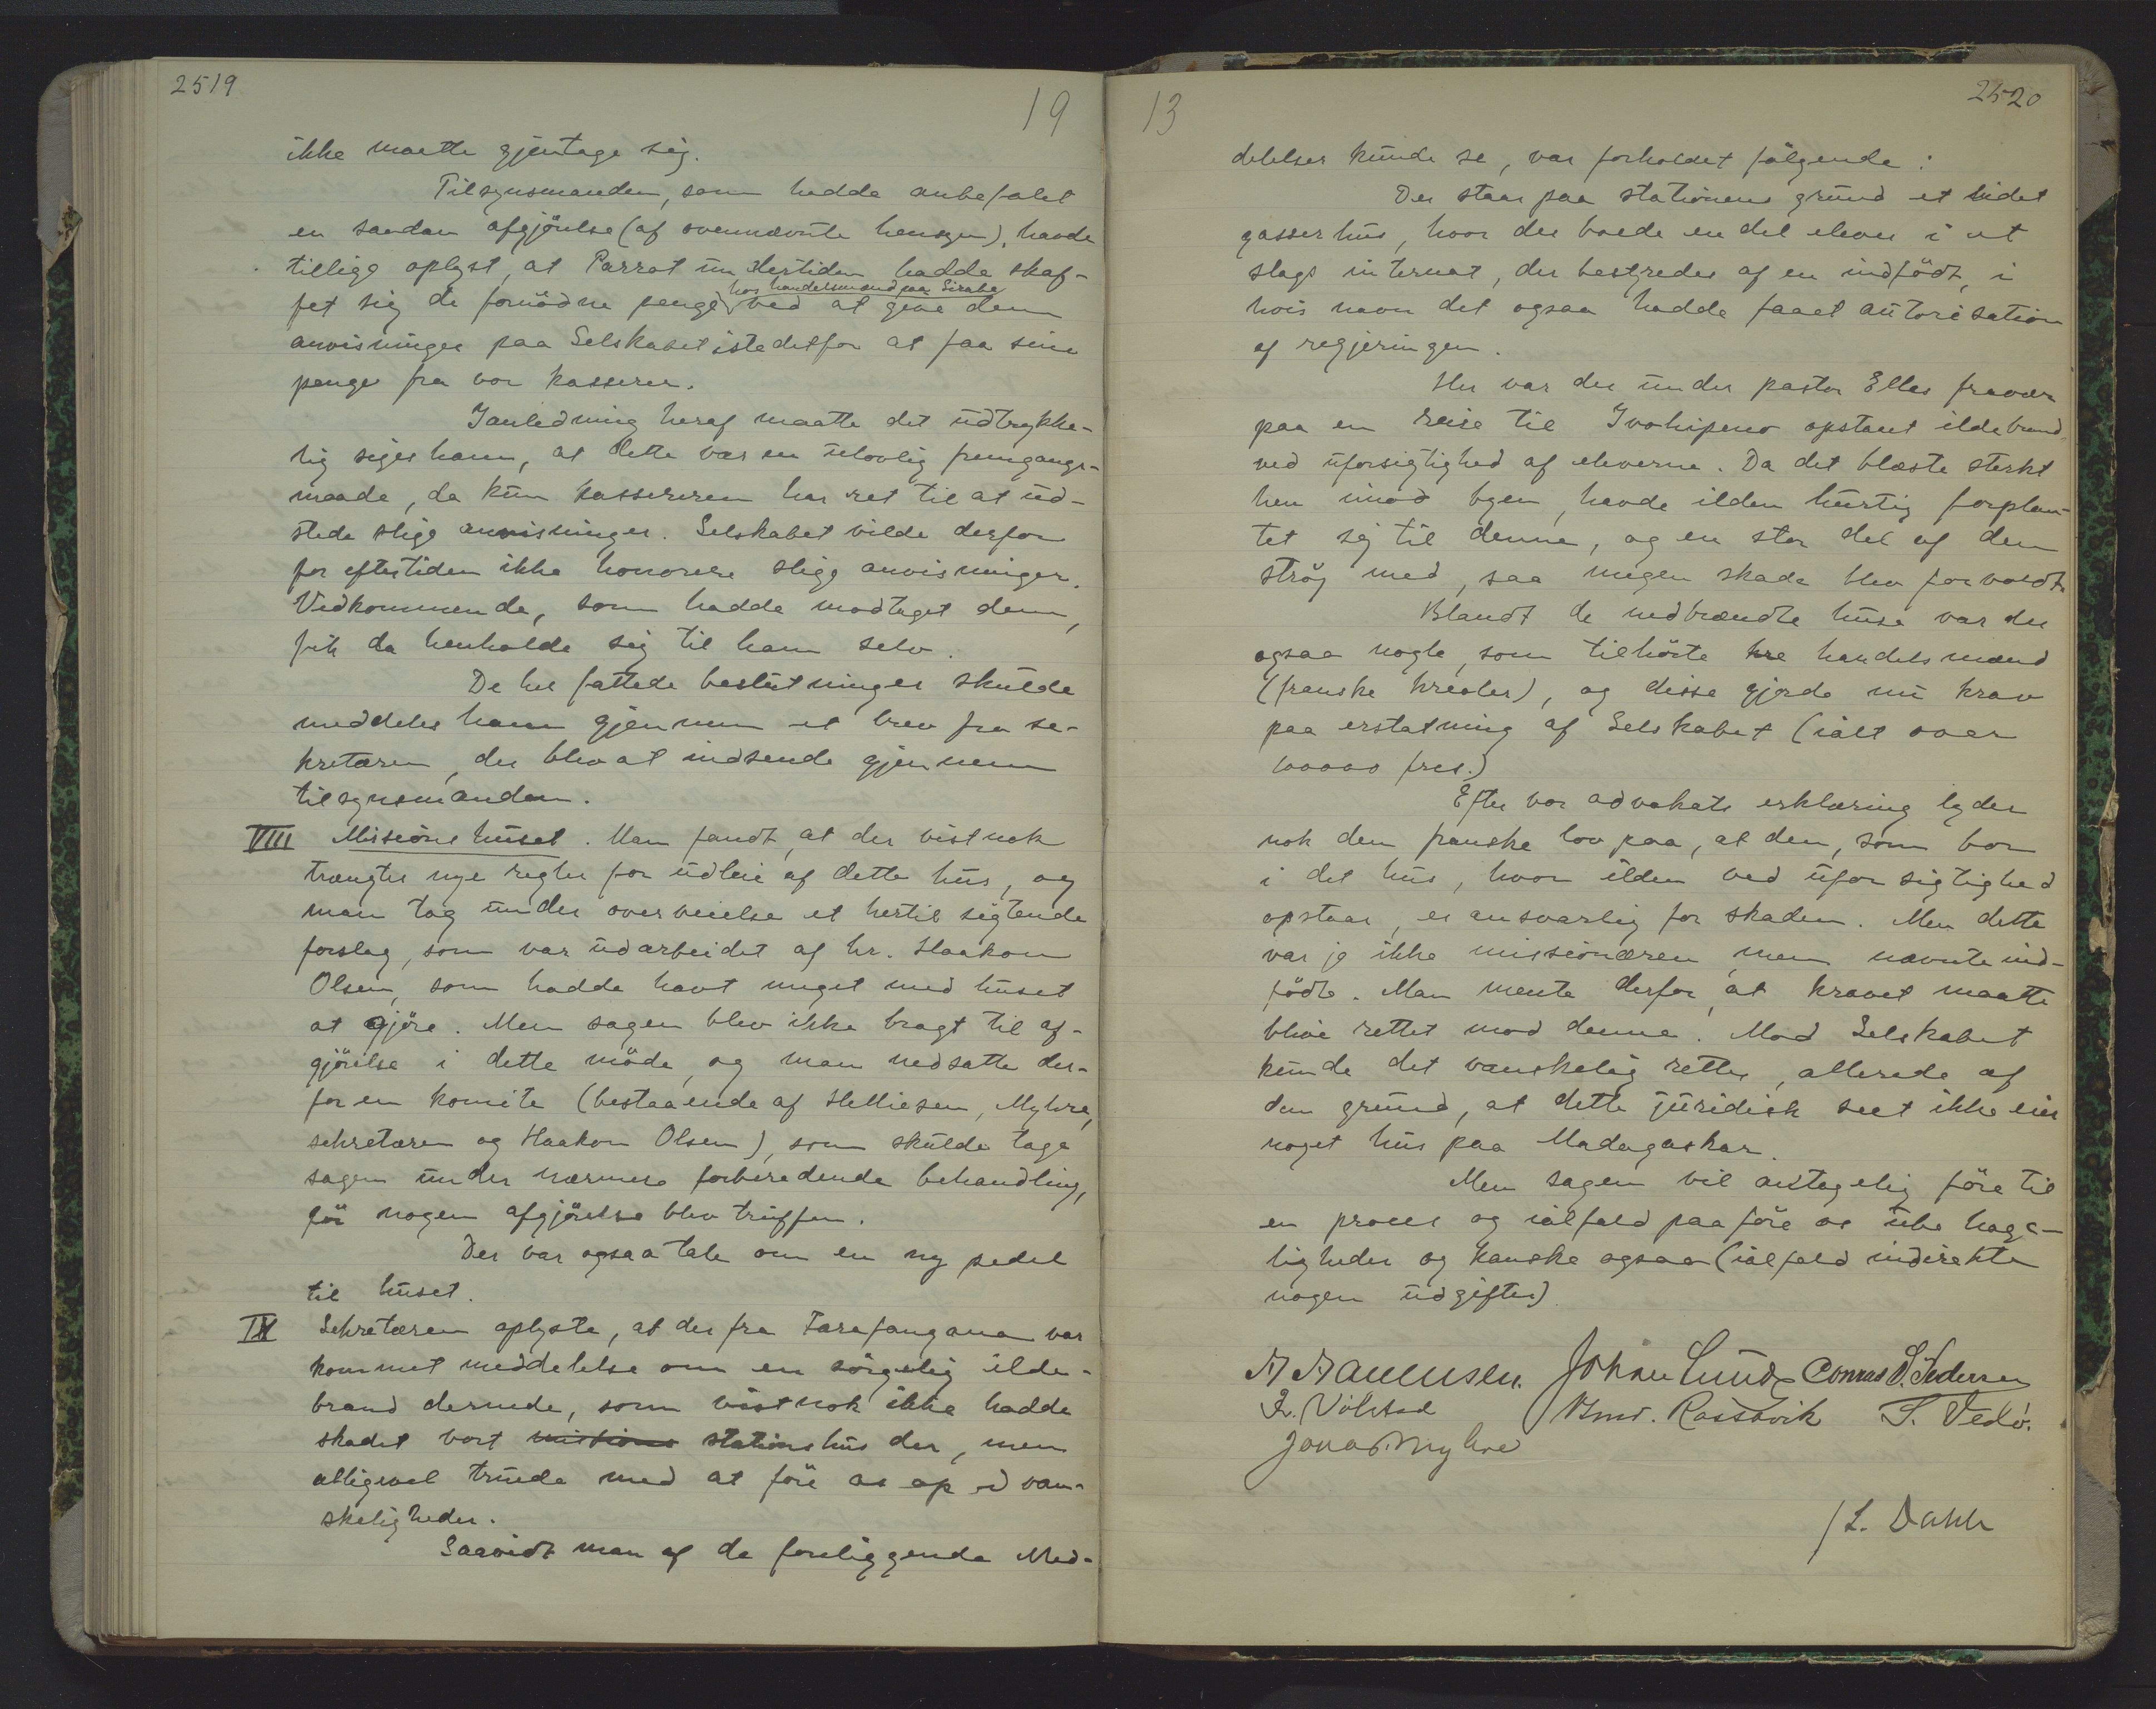 2519
19
ikke maatte gjentage sig.
Tilsynsmanden, som hadde anbefalet
en saadan afgjörelse (af ovennævnte hensyn), havde
tillige oplyst, at Parrot underiden hadde skaf-
hos handelsmænd paa Sirabe
fet sig de fornödne penge ved at give dem
anvisninger paa Selskabet istedetfor at faa sine
penge fra vor kasserer.
Ianledning heraf maatte det udtrykke-
lig siges ham, at dette var en ulovlig fremgangs-
maade, da kun kassereren har ret til at ud-
stede slige anvisninger. Selskabet vilde derfor
for eftertiden ikke honorere slige anvisninger.
Vedkommende, som hadde modtaget dem,
fik da henholde sig til ham selv.
De her fattede beslutninger skulde
meddeles ham gjennem et brev fra se-
kretæren, der blev at indsende gjennem
tilsynsmanden.
VIII Missionshuset. Man fandt, at der vistnok
trængtes nye regler for udleie af dette hus, og
man tog under overveielse et hertil sigtende
forslag, som var udarbeidet af hr. Haakon
Olsen, som hadde havt meget med huset
at gjöre. Men sagen blev ikke bragt til af-
gjörelse i dette möde, og man nedsatte der-
for en komite (bestaaende af Helliesen, Myhre,
sekretæren og Haakon Olsen), som skulde tage
sagen under nærmere forberedende behandling,
för nogen afgjörelse blev truffen.
Der var ogsaa tale om en ny pedel
til huset.
IX Sekretæren oplyste, at der fra Farafangana var
kommet meddelelse om en sörgelig ilde-
brand dernede, som vistnok ikke hadde
skadet vort missions stationshus der, men
alligevel truede med at före os op i van-
skeligheder.
Saavidt man af de foreliggende Med-
13
2520
delelser kunde se, var forholdet fölgende:
Der staar paa stationens grund et lidet
gasserhus, hvor der boede en del elever i et
slags internat, der bestyredes af en indfödt, i
hvis navn det ogsaa hadde faaet autorisation
af regjeringen.
Her var der under pastor Elles fravær
paa en reise til Ivohipeno opstaaet ildebrand
ved uforsigtighed af eleverne. Da det blæste sterkt
hen imod byen, havde ilden hurtig forplan-
tet sig til denne, og en stor del af den
strög med, saa megen skade blev forvoldt.
Blandt de nedbrændte huse var der
ogsaa nogle, som tilhörte tre handelsmænd
(franske kreoler), og disse gjorde nu krav
paa erstatning af Selskabet (ialt over
100000 frcs.)
Efter vor advokats erklæring lyder
nok den franske lov paa, at den, som bor
i det hus, hvor ilden ved uforsigtighed
opstaar, er ansvarlig for skaden. Men dette
var jo ikke missionæren, men nævnte ind-
födte. Man mente derfor, at kravet maatte
blive rettet mod denne. Mod Selskabet
kunde det vanskelig rettes, allerede af
den grund, at dette juridisk seet ikke eier
noget hus paa Madagaskar.
Men sagen vil antagelig före til
en proces og ialfald paaföre os ubehage-
ligheder og kanske ogsaa (ialfald indirekte
nogen udgifter)
Johan Lund Conrad S. Pedersen
Völstad Rossavik S. Vedö.
Jonas Myhre
/L. Dahle